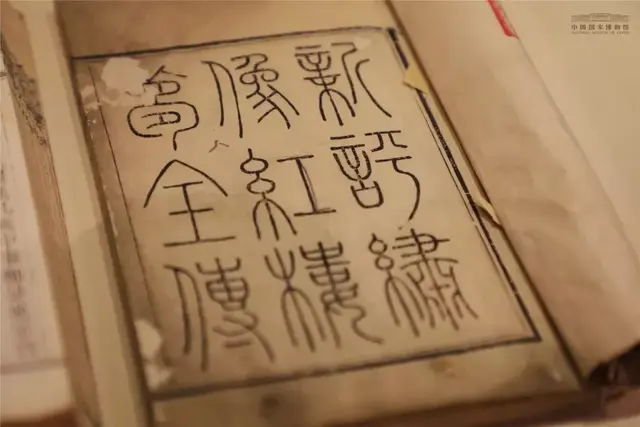 新評繡
像紅樓
夢全傳
中国国家博物館
NATIONAL MUSEUM OF CHINA